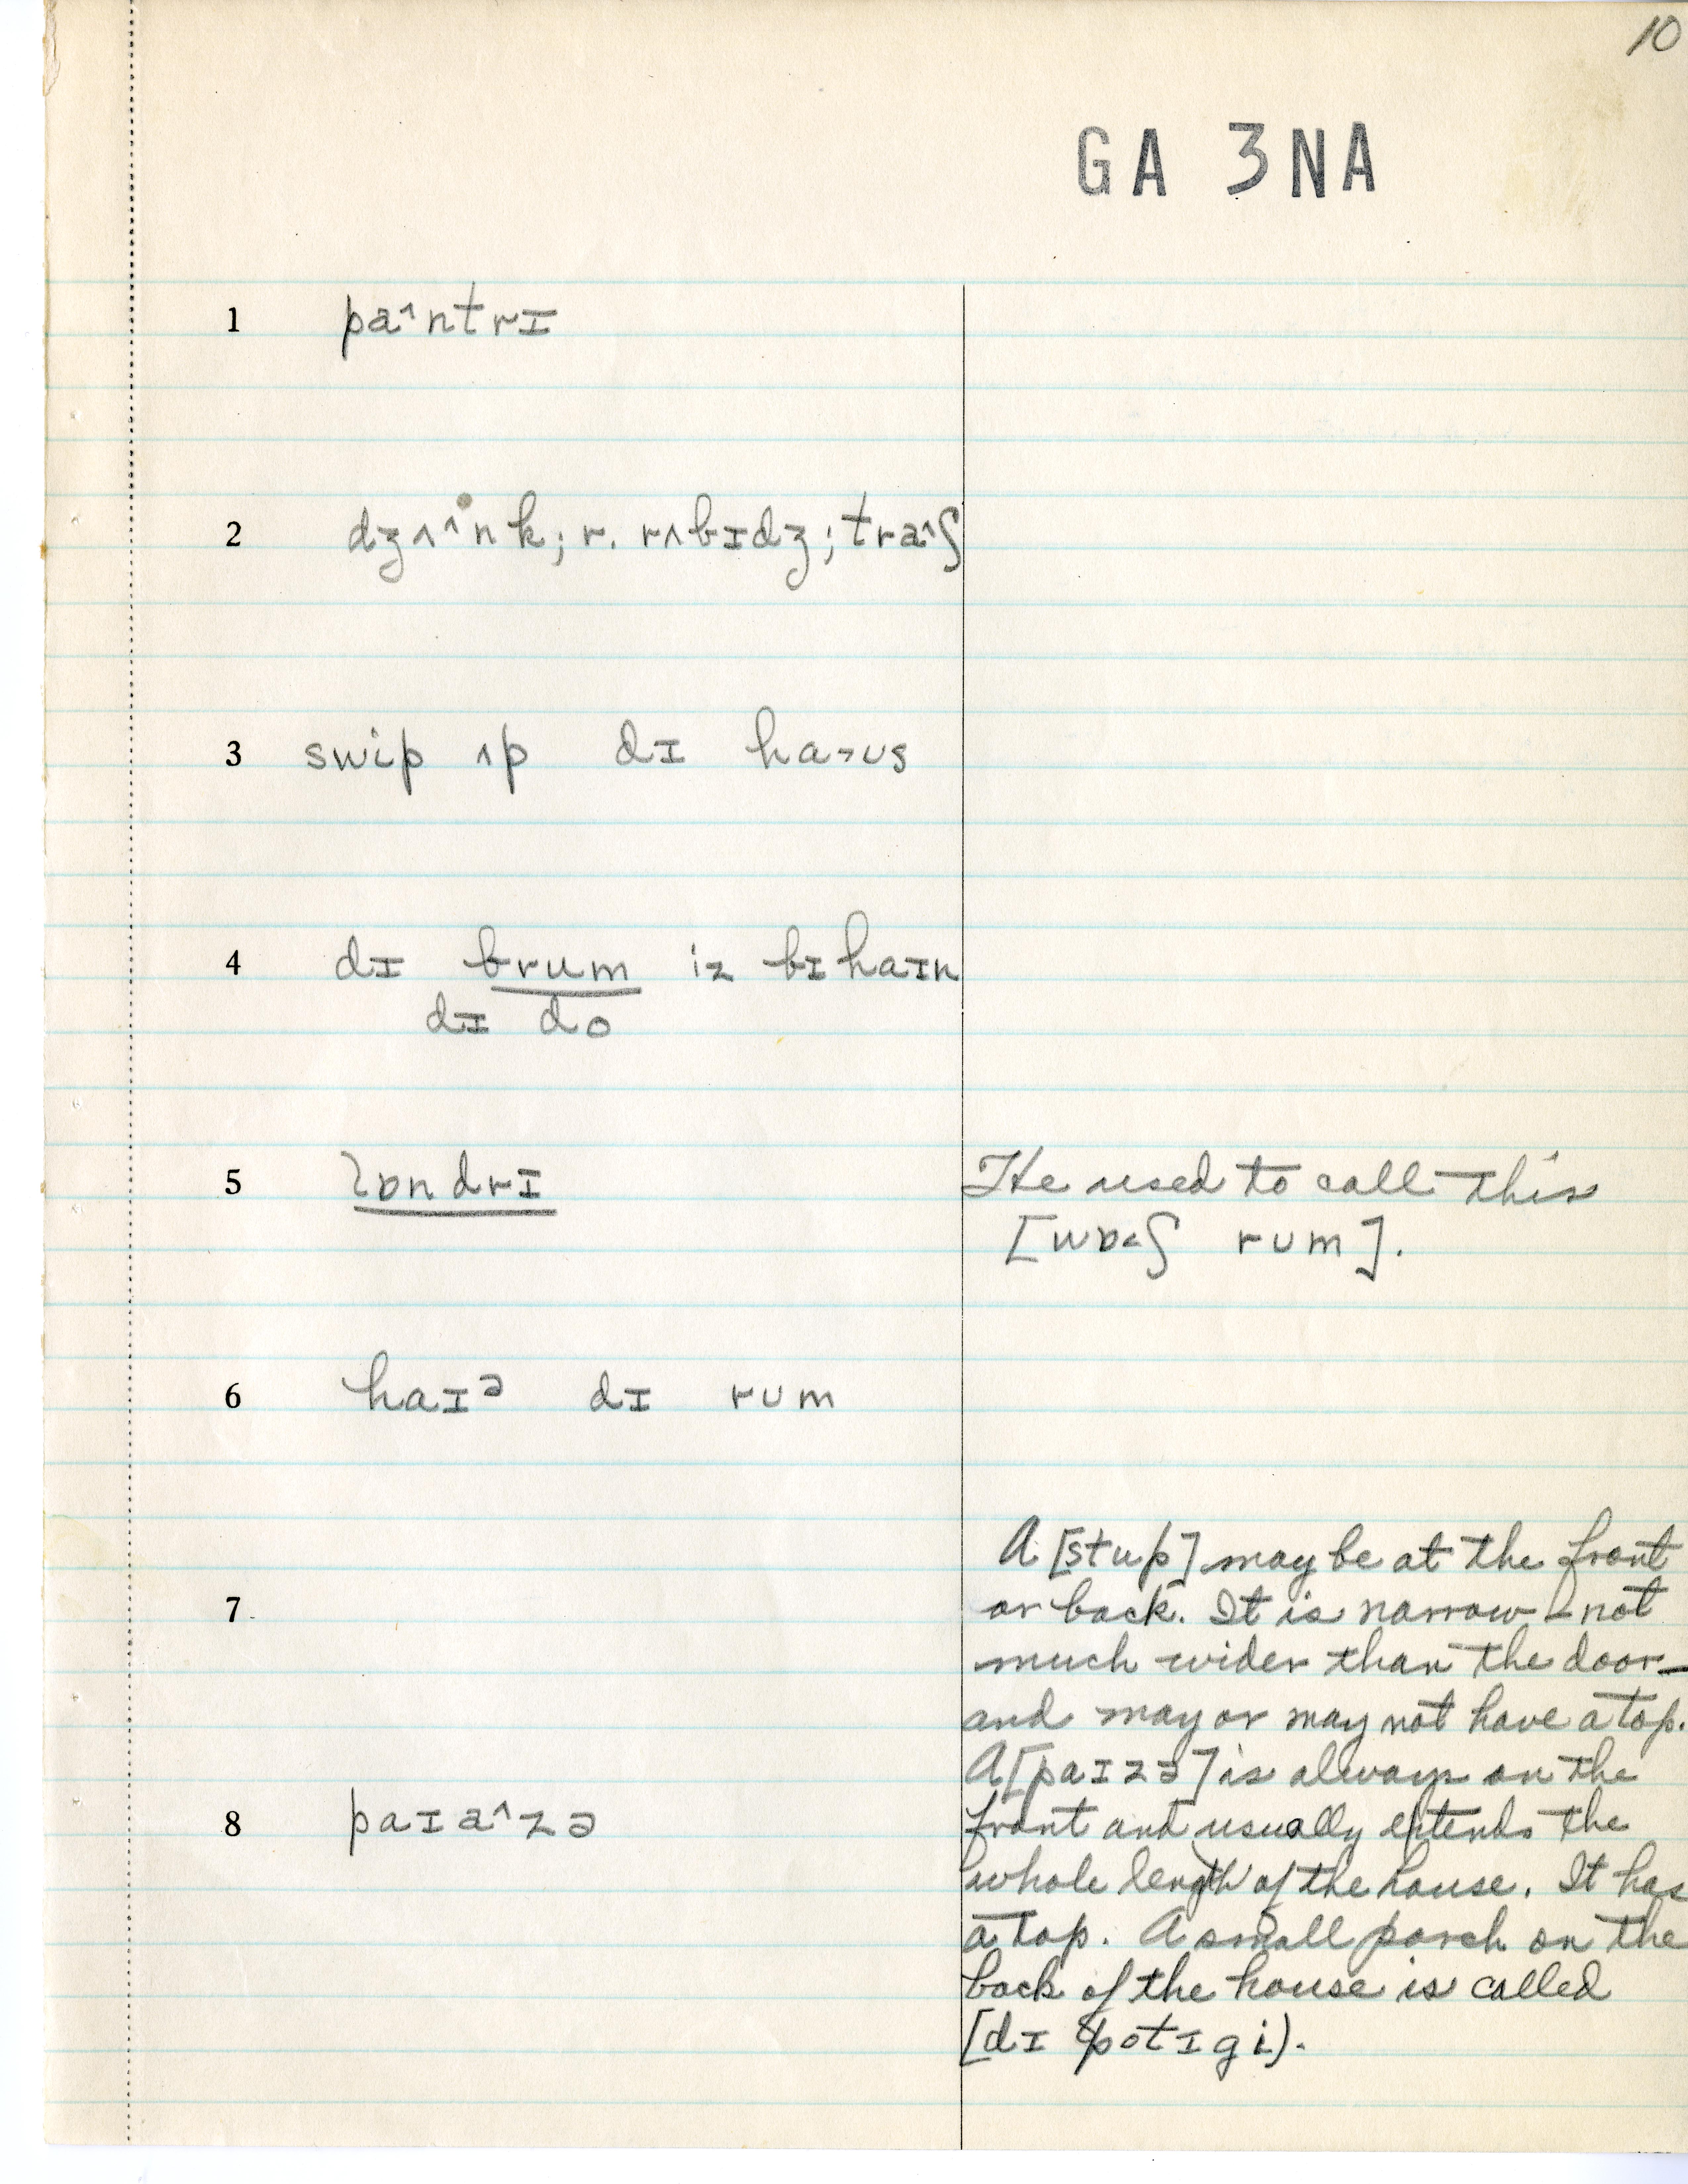 10
GA 3NA
1 pa^ntrɪ
2 dʒʌ^nk; r. rʌbɪdʒ; tra^ʃ
3 swip ʌp dɪ ha>ʊs
4 dɪ brum iz bɪhaɪn
dɪ do
5 lɒndrɪ
He used to call this
[wɒ<ʃ rum].
6 haɪᵊ dɪ rum
7
A [stup] may be at the front
or back. It is narrow – not
much wider than the door –
and may or may not have a top.
A [paɪzə] is always on the
8 paɪa^zə
front and usually extends the
whole length of the house. It has
a top. A small porch on the
back of the house is called
[dɪ potɪgi).